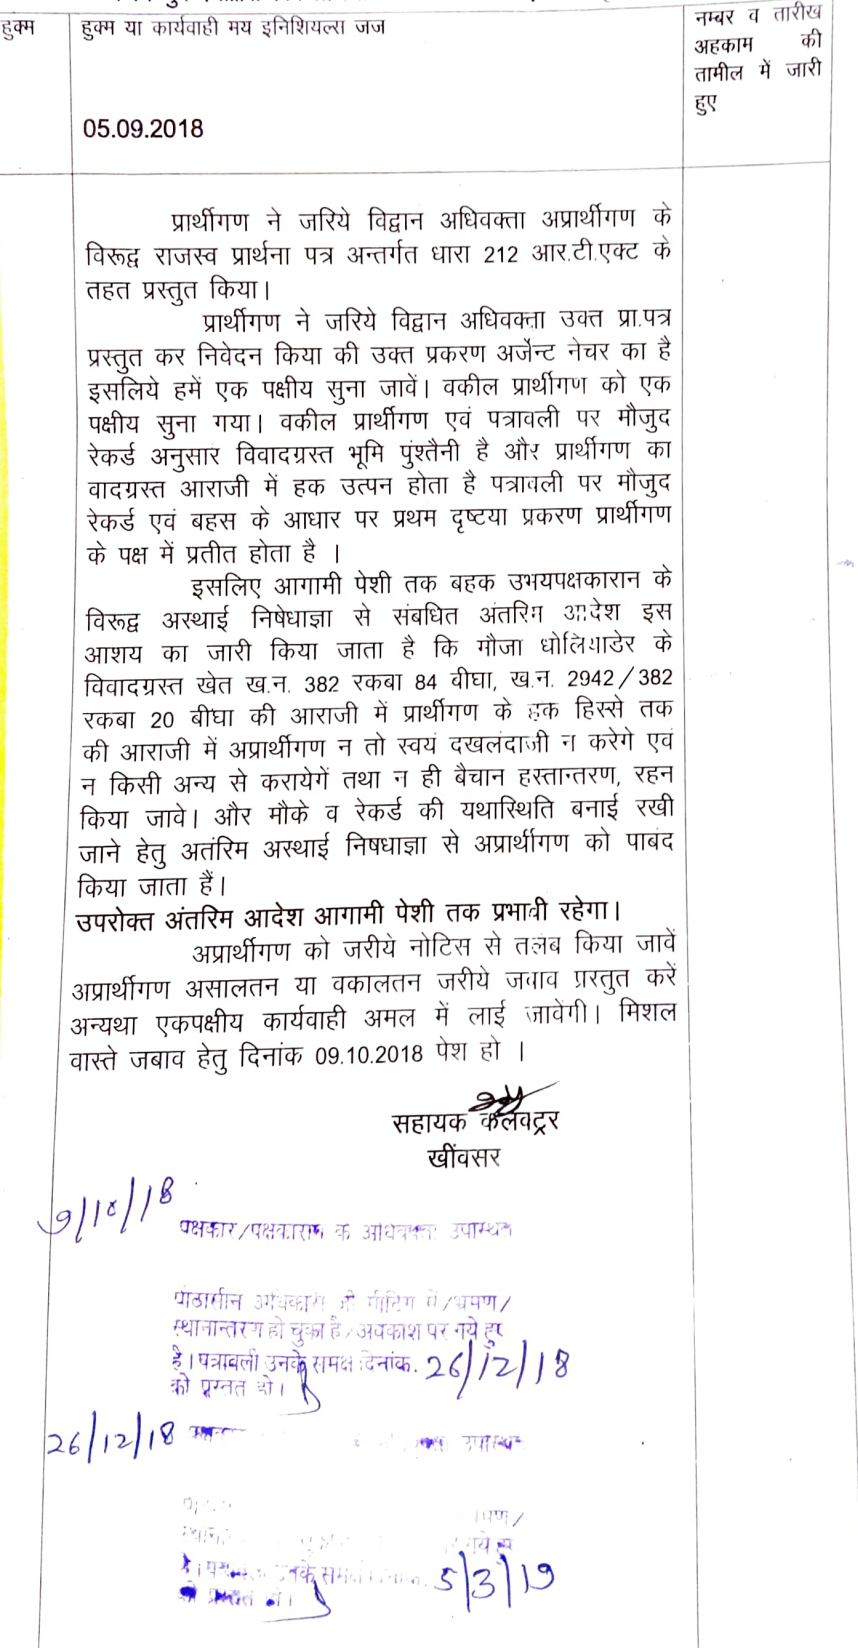 हुक्म
हुक्म या कार्यवाही मय इनिशियल्स जज
नम्बर व तारीख
अहकाम की
तामील में जारी
हुए
05.09.2018
प्रार्थीगण ने जरिये विद्वान अधिवक्ता अप्रार्थीगण के
विरूद्व राजस्व प्रार्थना पत्र अन्तर्गत धारा 212 आर.टी.एक्ट के
तहत प्रस्तुत किया।
प्रार्थीगण ने जरिये विद्वान अधिवक्ता उक्त प्रा.पत्र
प्रस्तुत कर निवेदन किया की उक्त प्रकरण अर्जेन्ट नेचर का है
इसलिये हमें एक पक्षीय सुना जावें। वकील प्रार्थीगण को एक
पक्षीय सुना गया। वकील प्रार्थीगण एवं पत्रावली पर मौजुद
रेकर्ड अनुसार विवादग्रस्त भूमि पुंश्तैनी है और प्रार्थीगण का
वादग्रस्त आराजी में हक उत्पन होता है पत्रावली पर मौजुद
रेकर्ड एवं बहस के आधार पर प्रथम दृष्टया प्रकरण प्रार्थीगण
के पक्ष में प्रतीत होता है ।
इसलिए आगामी पेशी तक बहक उभयपक्षकारान के
विरूद्व अस्थाई निषेधाज्ञा से संबधित अंतरिम आदेश इस
आशय का जारी किया जाता है कि मौजा धोलियाडेर के
विवादग्रस्त खेत ख.न. 382 रकबा 84 बीघा, ख.न. 2942/382
रकबा 20 बीघा की आराजी में प्रार्थीगण के हक हिस्से तक
की आराजी में अप्रार्थीगण न तो स्वयं दखलंदाजी न करेगे एवं
न किसी अन्य से करायेगें तथा न ही बैचान हस्तान्तरण, रहन
किया जावे। और मौके व रेकर्ड की यथास्थिति बनाई रखी
जाने हेतु अतंरिम अस्थाई निषधाज्ञा से अप्रार्थीगण को पाबंद
किया जाता हैं।
उपरोक्त अंतरिम आदेश आगामी पेशी तक प्रभावी रहेगा।
अप्रार्थीगण को जरीये नोटिस से तलब किया जावें
अप्रार्थीगण असालतन या वकालतन जरीये जवाव प्रस्तुत करें
अन्यथा एकपक्षीय कार्यवाही अमल में लाई जावेगी। मिशल
वास्ते जबाव हेतु दिनांक 09.10.2018 पेश हो ।
सहायक कलक्ट्रर
खींवसर
9/10/18
पक्षकार/पक्षकारान के अधिवक्ता उपस्थित
पीठासीन अधिकारी मीटिंग में/भ्रमण/
स्थानान्तरण हो चुका है/अवकाश पर गये हुए
है। पत्रावली उनके समक्ष दिनांक. 26/12/18
को प्रस्तुत हो।
26/12/18 उपस्थित
गये हुए
उनके समक्ष 5/3/19